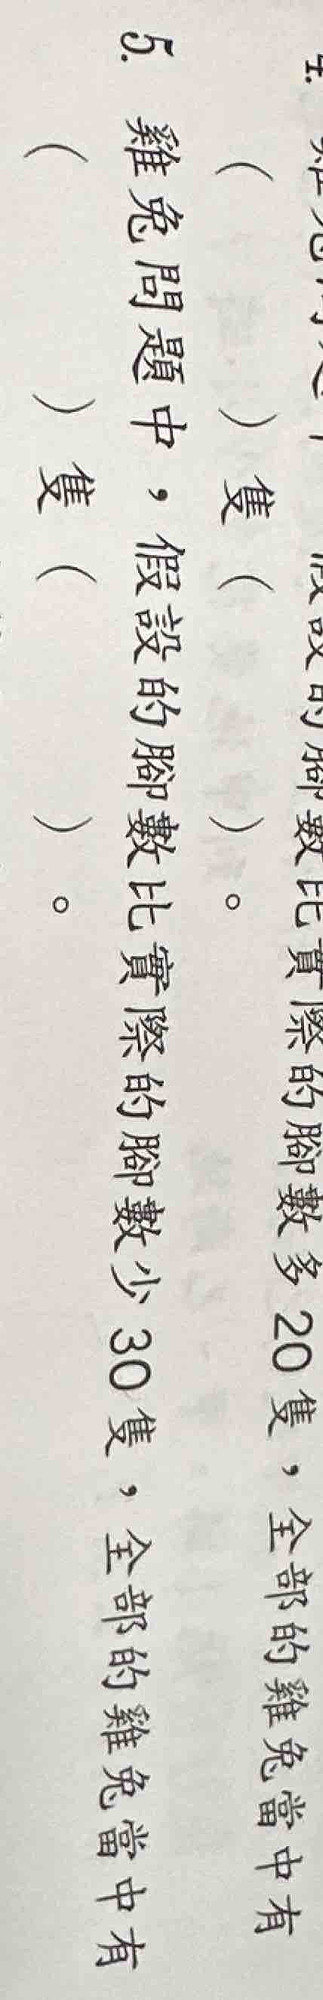 4. 雞兔問題中，假設的腳數比實際的腳數多20隻，全部的雞兔當中有
（　　）隻（　　）。
5. 雞兔問題中，假設的腳數比實際的腳數少30隻，全部的雞兔當中有
（　　）隻（　　）。